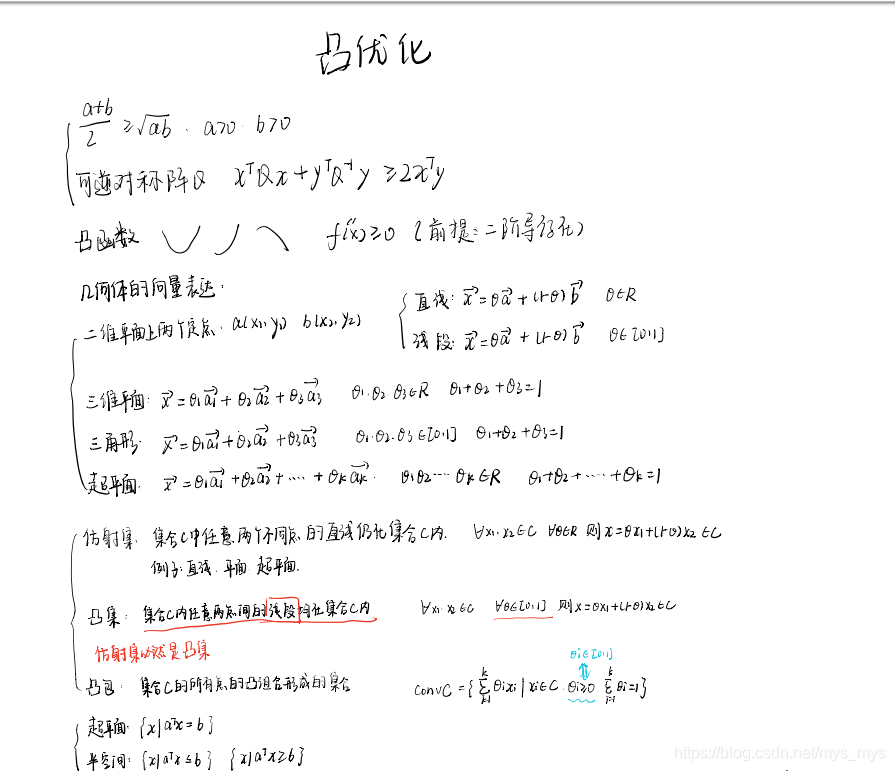 凸优化
a+b/2 ≥ √ab . a>0 . b>0
可逆对称阵Q xᵀQx + yᵀQ⁻¹y ≥ 2xᵀy
凸函数 f''(x) ≥ 0 (前提:二阶导存在)
几何体的向量表达:
二维平面上两个定点: a(x₁,y₁) b(x₂,y₂)
直线: x⃗ = θa⃗ + (1-θ)b⃗ θ∈R
线段: x⃗ = θa⃗ + (1-θ)b⃗ θ∈[0,1]
三维平面: x⃗ = θ₁a₁⃗ + θ₂a₂⃗ + θ₃a₃⃗ θ₁.θ₂.θ₃∈R θ₁+θ₂+θ₃=1
三角形: x⃗ = θ₁a₁⃗ + θ₂a₂⃗ + θ₃a₃⃗ θ₁.θ₂.θ₃∈[0,1] θ₁+θ₂+θ₃=1
超平面: x⃗ = θ₁a₁⃗ + θ₂a₂⃗ + ···· + θₖaₖ⃗ θ₁θ₂···θₖ∈R θ₁+θ₂+····+θₖ=1
仿射集: 集合C中任意两个不同点的直线仍在集合C内. ∀x₁.x₂∈C ∀θ∈R 则x=θx₁+(1-θ)x₂∈C
例子:直线.平面.超平面.
凸集: 集合C内任意两点间的线段均在集合C内 ∀x₁.x₂∈C ∀θ∈[0,1] 则x=θx₁+(1-θ)x₂∈C
仿射集必然是凸集
θi∈[0,1]
凸包: 集合C的所有点的凸组合形成的集合 convC = {∑ᵏᵢ₌₁θixi | xi∈C . θi≥0 . ∑ᵏᵢ₌₁θi=1}
超平面: {x|aᵀx=b}
半空间: {x|aᵀx≤b} {x|aᵀx≥b}
https://blog.csdn.net/mys_mys